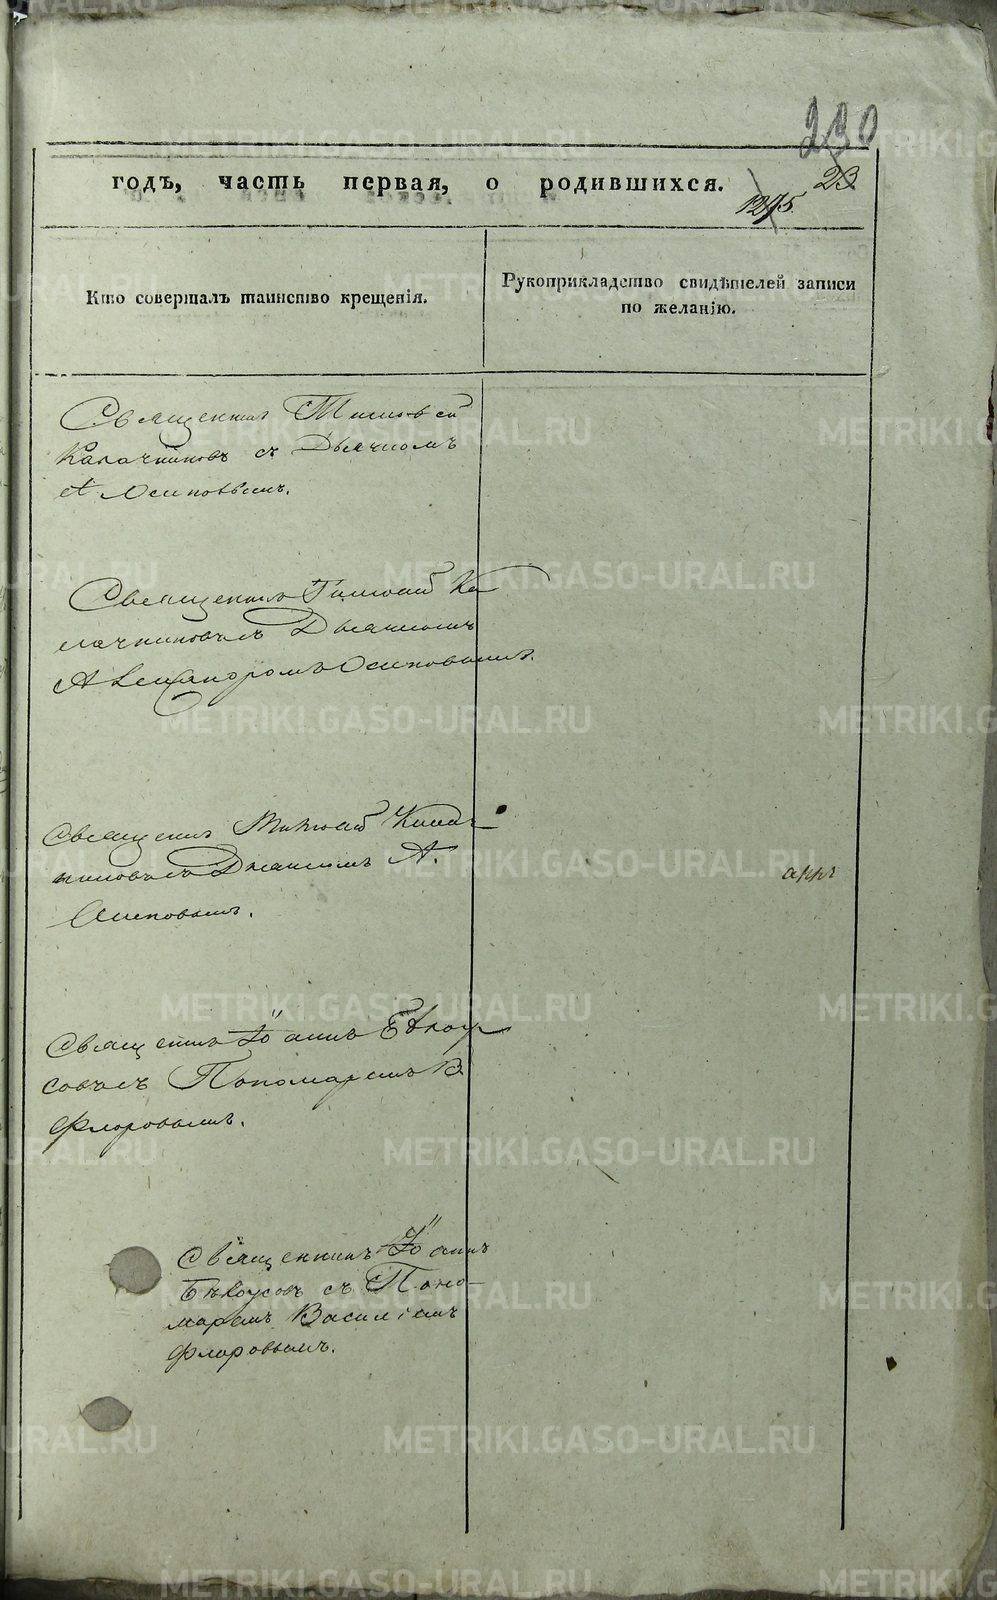 230
годъ, часть первая, о родившихся.
23
1275
Кто совершалъ таинство крещенія.
Рукоприкладство свидѣтелей записи
по желанію.
Священникъ Тимоѳей
Калачниковъ съ Дьячкомъ
А Осиповымъ.
Священникъ Тимоѳей Ка
лачниковъ съ Дьячкомъ
Александромъ Осиповымъ.
Священникъ Тимоѳей Калач
никовъ съ Дьячкомъ А.
Осиповымъ.
Священникъ Іоаннъ Бѣлоу
совъ съ Пономаремъ В.
Флоровымъ.
Священникъ Іоаннъ
Бѣлоусовъ съ Поно-
маремъ Василіемъ
Флоровымъ.
METRIKI.GASO-URAL.RU